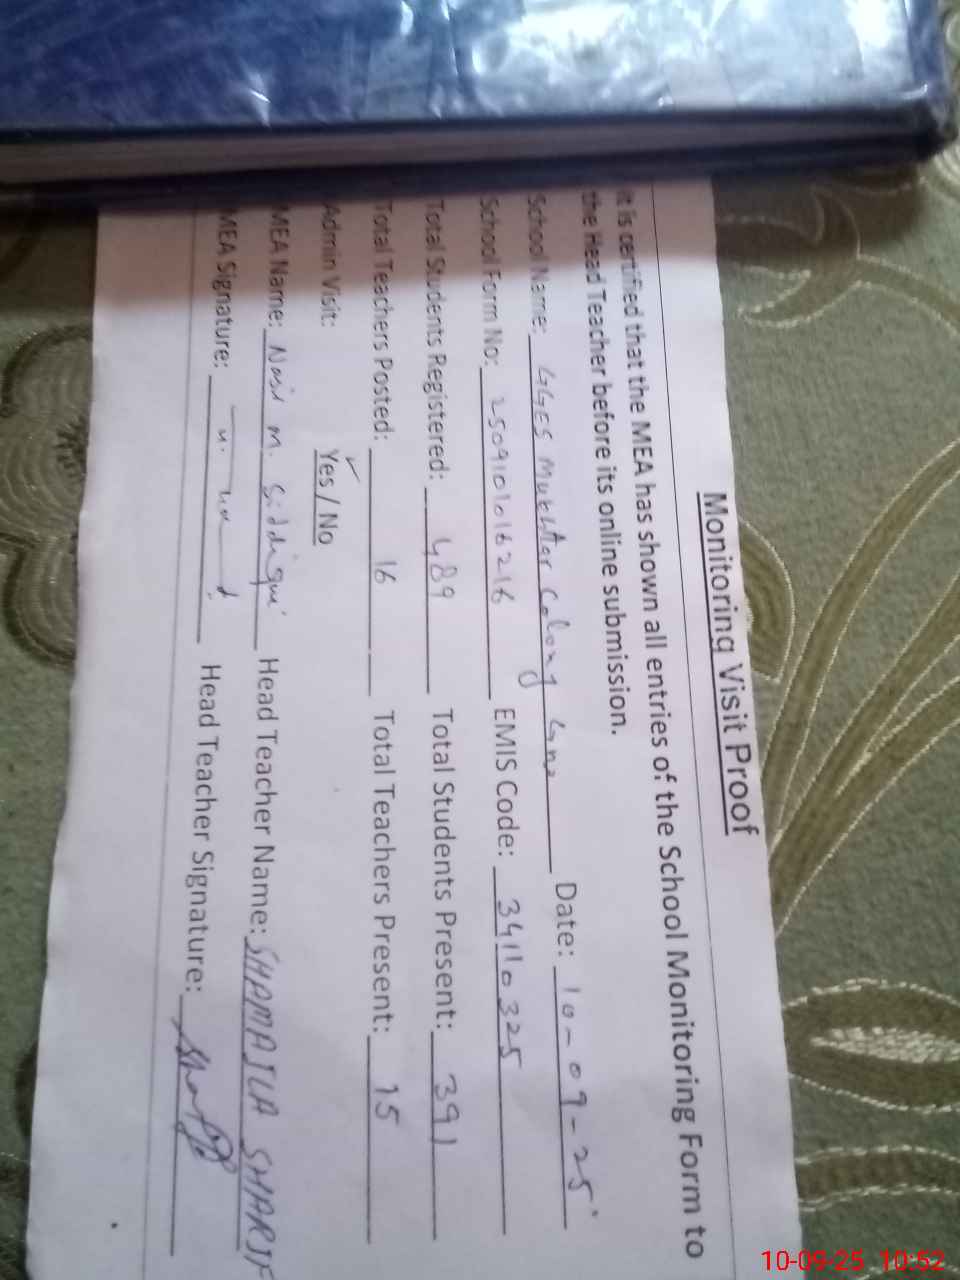 Monitoring Visit Proof
It is certified that the MEA has shown all entries of the School Monitoring Form to
the Head Teacher before its online submission.
School Name: GGES Mukhtar Colony Date: 10-09-25
School Form No: 2509101016216 EMIS Code: 34110325
Total Students Registered: 489 Total Students Present: 391
Total Teachers Posted: 16 Total Teachers Present: 15
Admin Visit: Yes / No
MEA Name: Nasir M. Siddique Head Teacher Name: SHAMAILA SHARIF
MEA Signature: Head Teacher Signature:
10-09-25 10:52